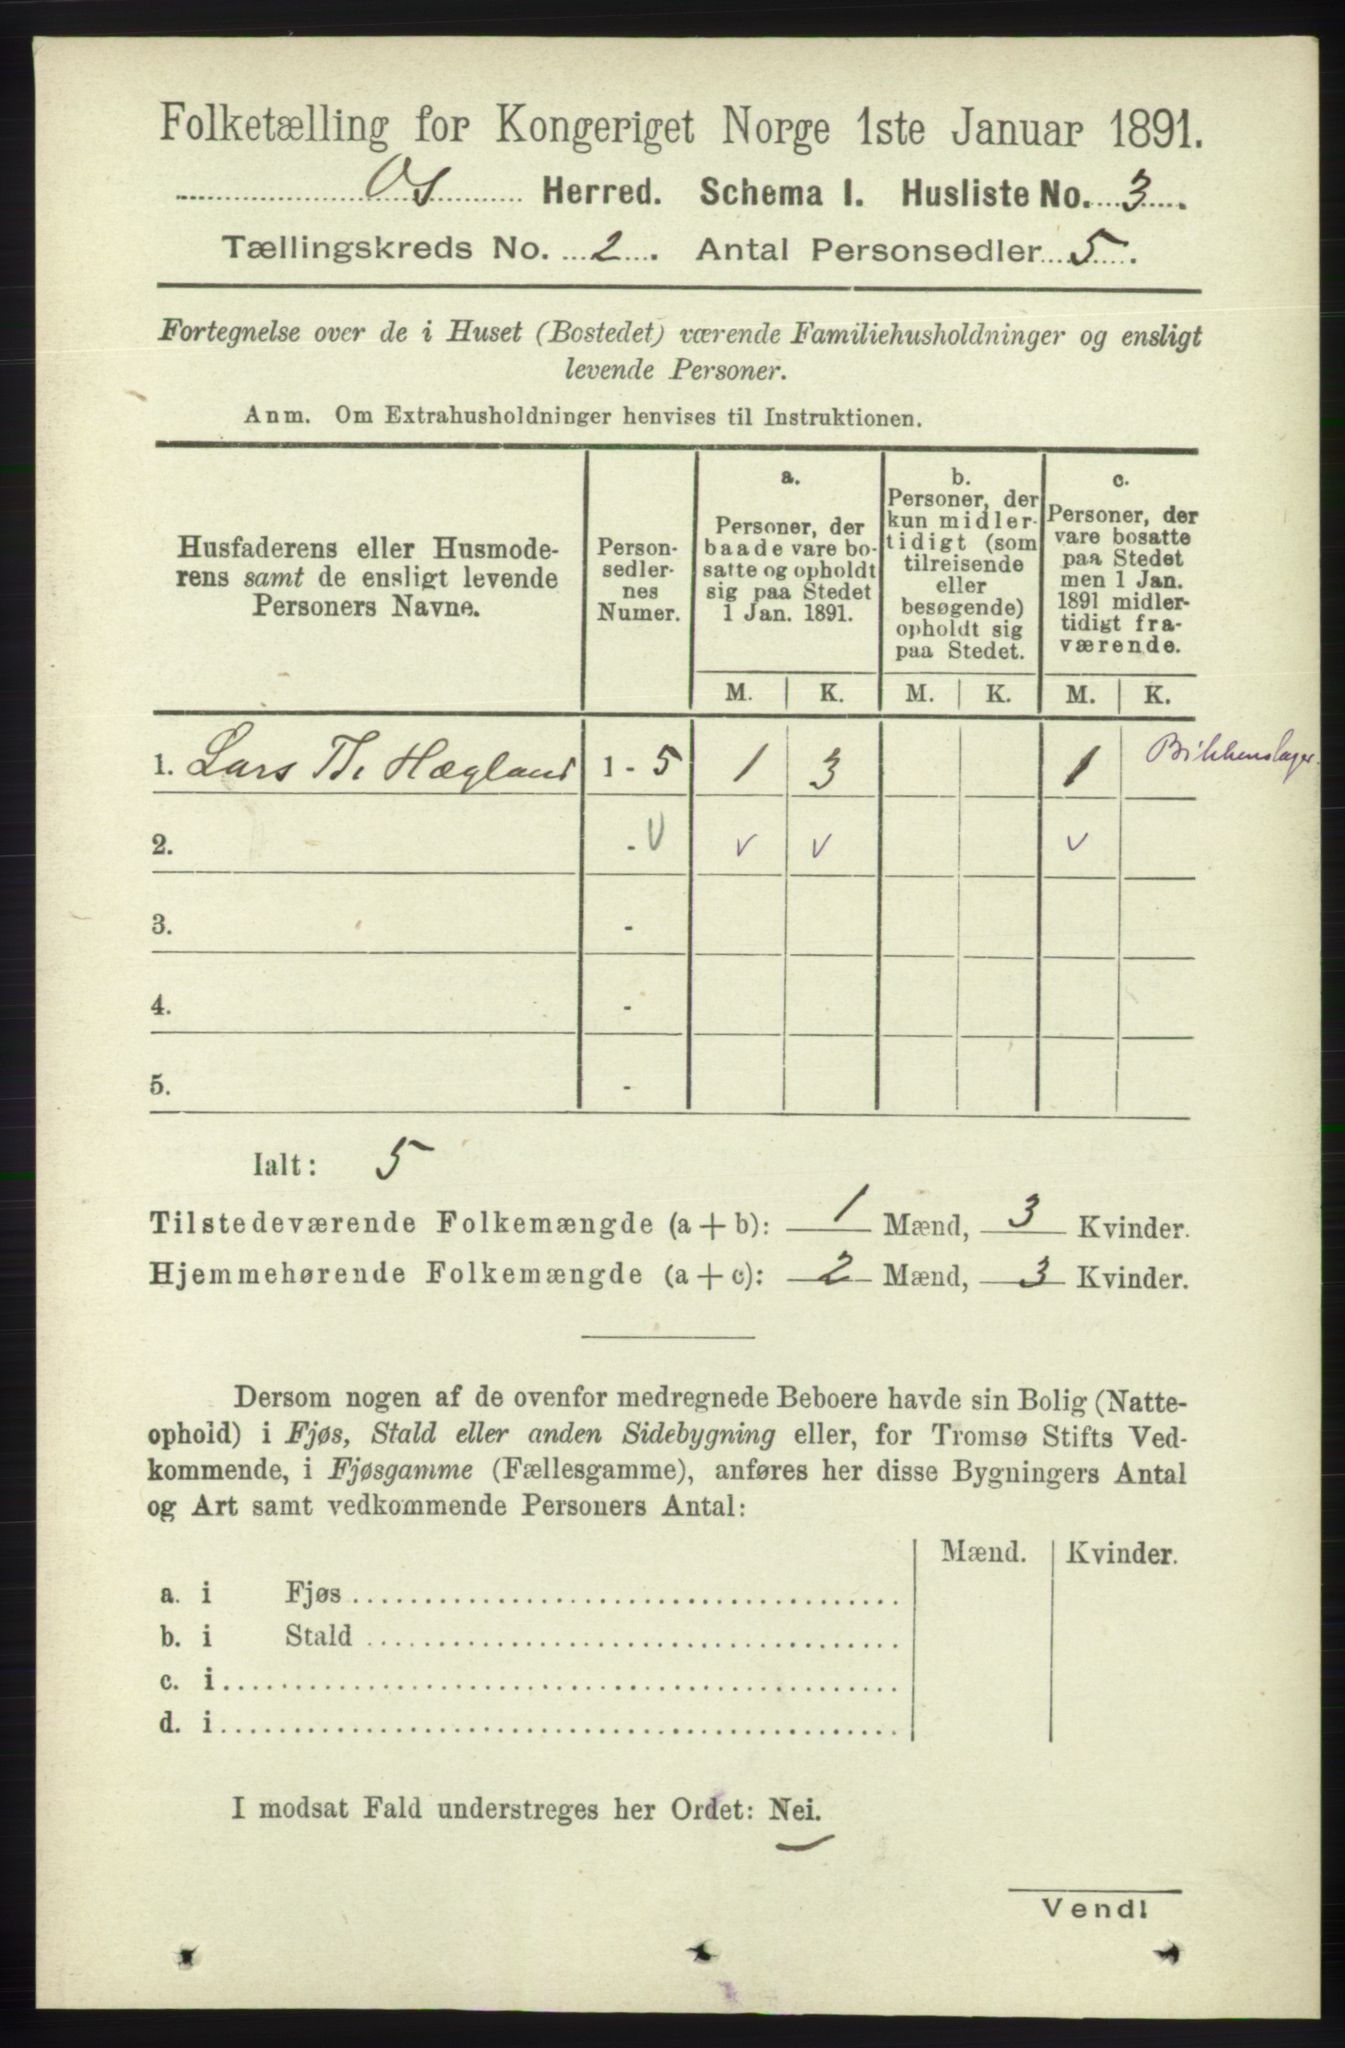 Folketælling for Kongeriget Norge 1ste Januar 1891.
Os Herred. Schema I. Husliste No. 3.
Tællingskreds No. 2. Antal Personsedler 5.
Fortegnelse over de i Huset (Bostedet) værende Familiehusholdninger og ensligt
levende Personer.
Anm. Om Extrahusholdninger henvises til Instruktionen.
Husfaderens eller Husmode-
rens samt de ensligt levende
Personers Navne.
Person-
sedler-
nes
Numer.
a.
Personer, der
baade vare bo-
satte og opholdt
sig paa Stedet
1 Jan. 1891.
b.
Personer, der
kun midler-
tidigt (som
tilreisende
eller
besøgende)
opholdt sig
paa Stedet.
c.
Personer, der
vare bosatte
paa Stedet
men 1 Jan.
1891 midler-
tidigt fra-
værende.
M. K. M. K. M. K.
1. Lars Th. Hægland 1 - 5 1 3 1
2. - v v v v
3. -
4. -
5. -
Ialt: 5
Tilstedeværende Folkemængde (a + b): 1 Mænd, 3 Kvinder.
Hjemmehørende Folkemængde (a + c): 2 Mænd, 3 Kvinder.
Dersom nogen af de ovenfor medregnede Beboere havde sin Bolig (Natte-
ophold) i Fjøs, Stald eller anden Sidebygning eller, for Tromsø Stifts Ved-
kommende, i Fjøsgamme (Fællesgamme), anføres her disse Bygningers Antal
og Art samt vedkommende Personers Antal:
Mænd. Kvinder.
a. i Fjøs
b. i Stald
c. i
d. i
I modsat Fald understreges her Ordet: Nei.
Vend!